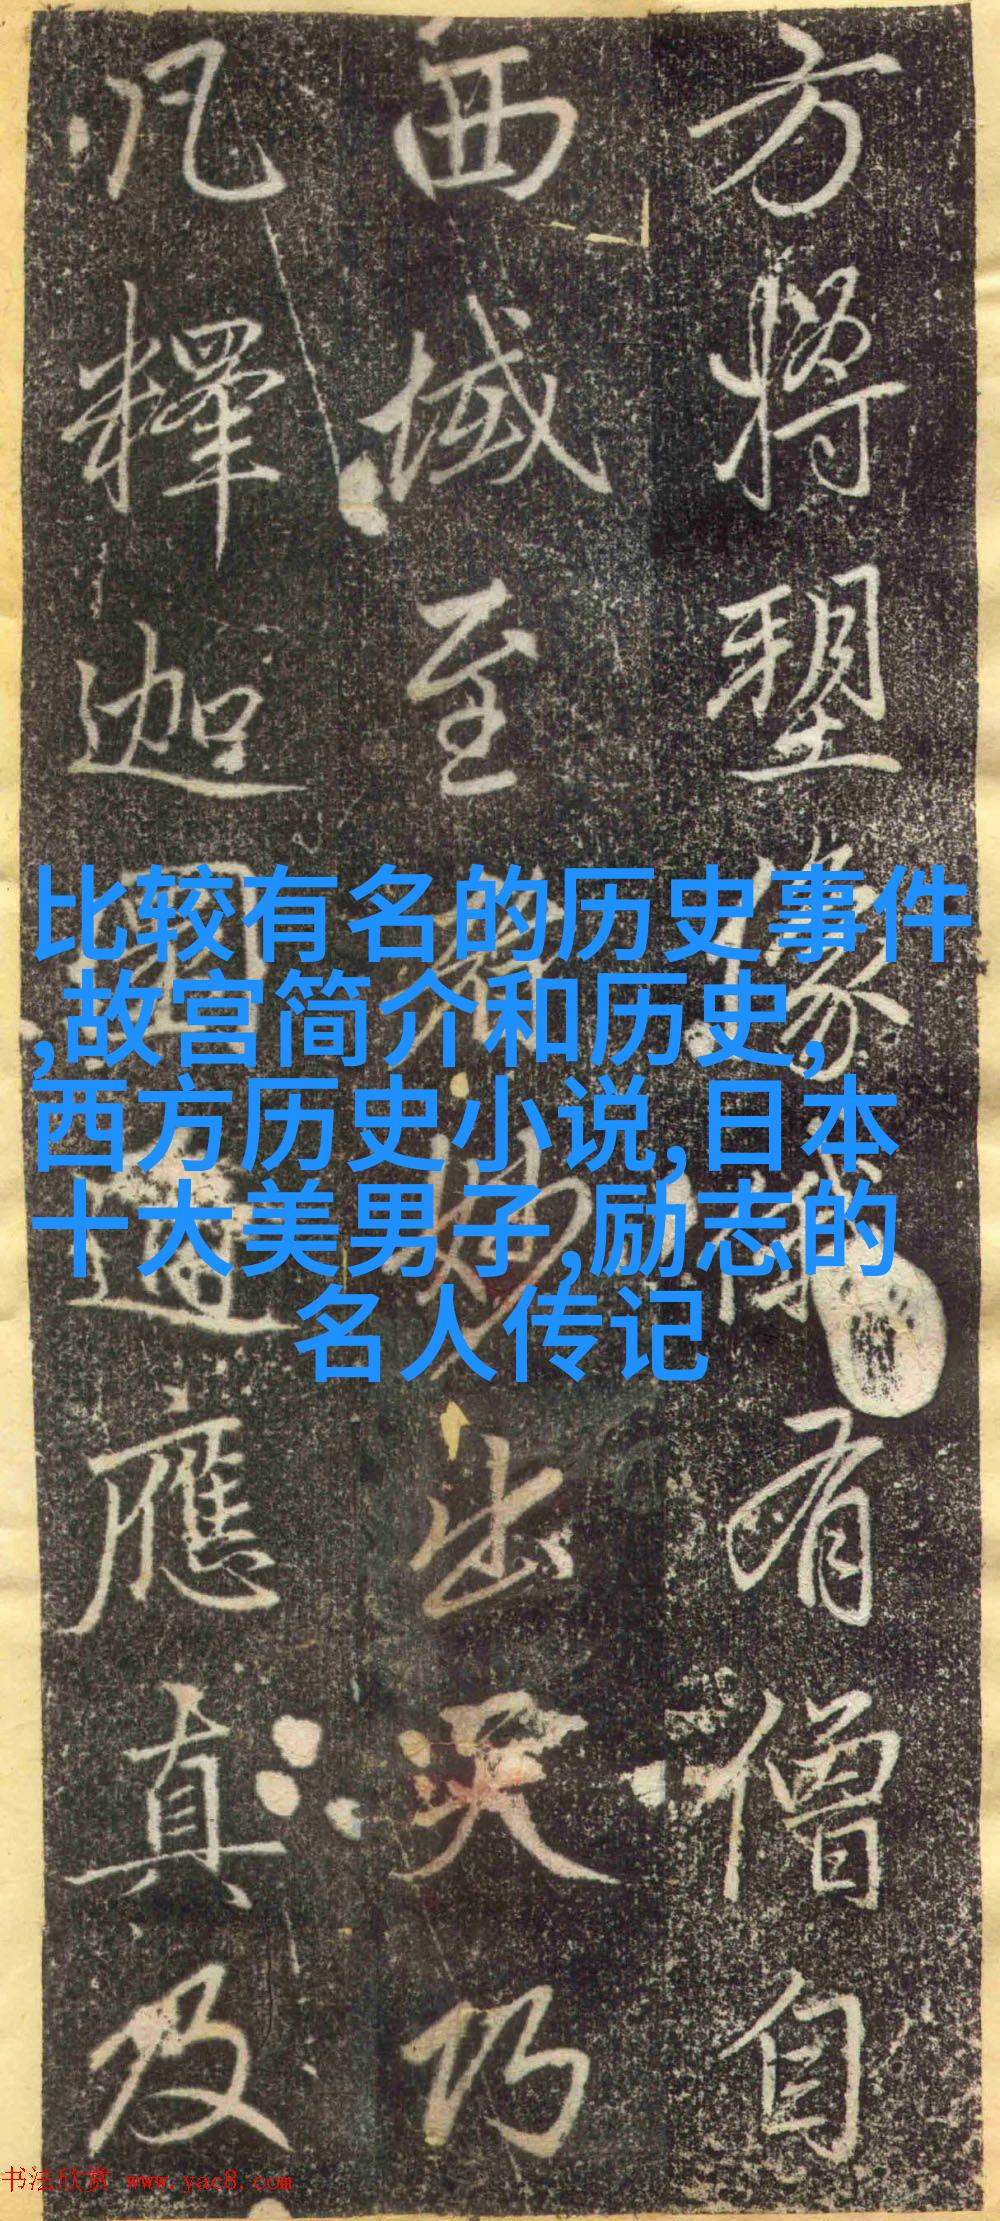 方將塑像有僧自
西域至妙出天巧
凡釋迦應真及
比较有名的历史事件
,故宫简介和历史,
西方历史小说,日本
十大美男子,励志的
名人传记
书法欣赏 www.yac8.com